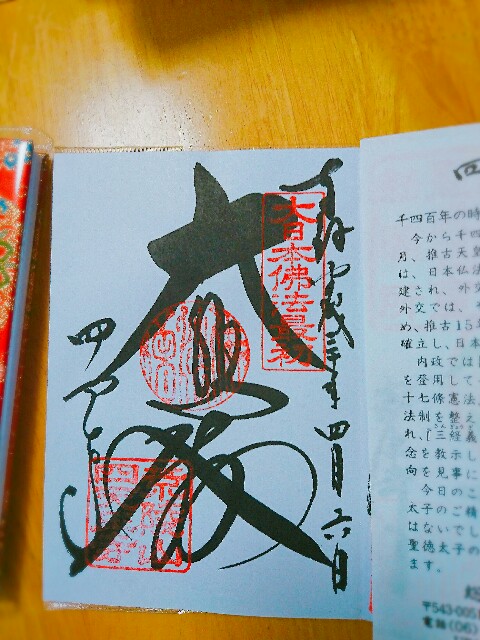 奉拝 平成三十年四月六日
大日本佛法最初
大
四天王寺
四
千四百年の時
今から千四
月、推古天皇
は、日本仏法
建され、外交
外交では、
め、推古15
確立し、日本
内政では
を登用して
十七條憲法、
法制を整え
れ、「三経義
念を教示し
向を見事に
今日のこ
太子のご精
はないでし
聖徳太子の
ます。
〒543-0051
電話(06)